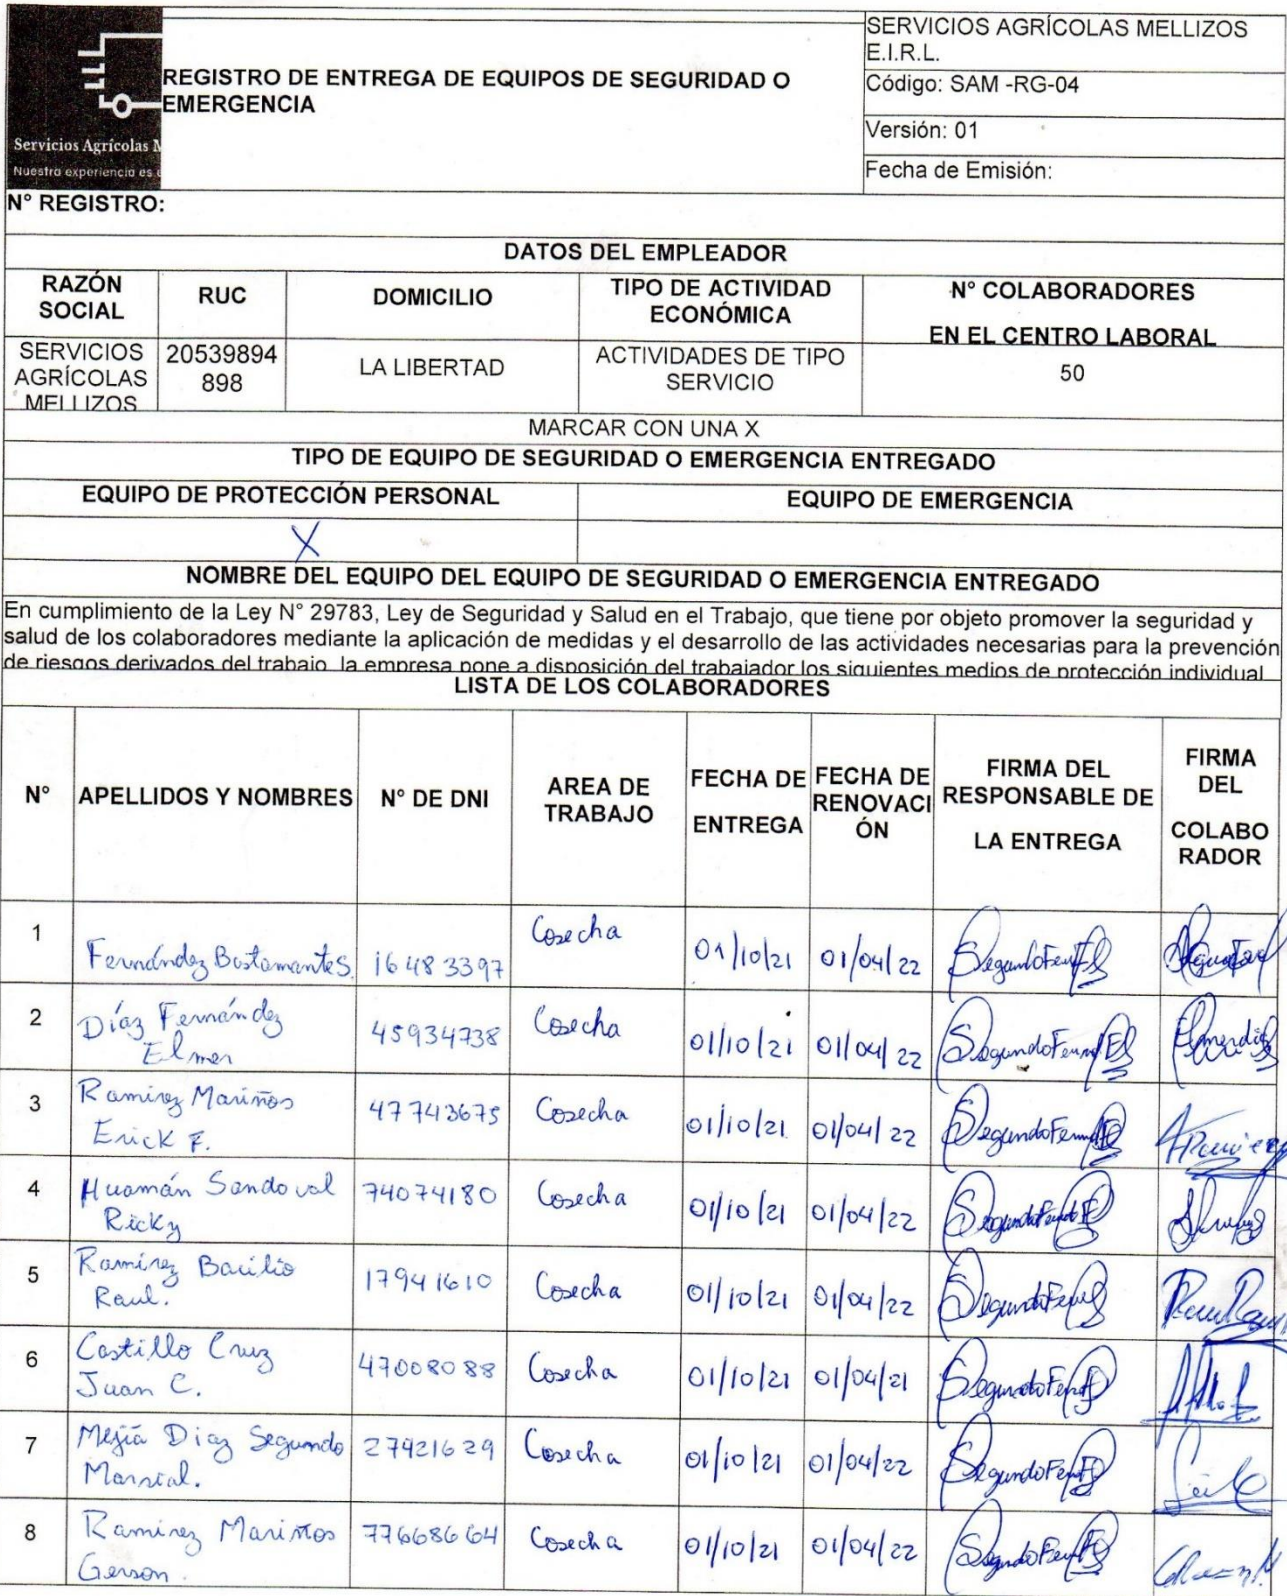 SERVICIOS AGRÍCOLAS MELLIZOS
E.I.R.L.
REGISTRO DE ENTREGA DE EQUIPOS DE SEGURIDAD O
EMERGENCIA
Código: SAM -RG-04
Versión: 01
Fecha de Emisión:
Servicios Agrícolas M
Nuestra experiencia es
N° REGISTRO:
DATOS DEL EMPLEADOR
RAZÓN SOCIAL RUC DOMICILIO TIPO DE ACTIVIDAD ECONÓMICA N° COLABORADORES EN EL CENTRO LABORAL
SERVICIOS AGRÍCOLAS MELLIZOS 20539894 898 LA LIBERTAD ACTIVIDADES DE TIPO SERVICIO 50
MARCAR CON UNA X
TIPO DE EQUIPO DE SEGURIDAD O EMERGENCIA ENTREGADO
EQUIPO DE PROTECCIÓN PERSONAL EQUIPO DE EMERGENCIA
X
NOMBRE DEL EQUIPO DEL EQUIPO DE SEGURIDAD O EMERGENCIA ENTREGADO
En cumplimiento de la Ley N° 29783, Ley de Seguridad y Salud en el Trabajo, que tiene por objeto promover la seguridad y
salud de los colaboradores mediante la aplicación de medidas y el desarrollo de las actividades necesarias para la prevención
de riesgos derivados del trabajo, la empresa pone a disposición del trabajador los siguientes medios de protección individual
LISTA DE LOS COLABORADORES
N° APELLIDOS Y NOMBRES N° DE DNI AREA DE TRABAJO FECHA DE ENTREGA FECHA DE RENOVACIÓN FIRMA DEL RESPONSABLE DE LA ENTREGA FIRMA DEL COLABORADOR
1 Fernández Bustamante S. 16483397 Cosecha 01/10/21 01/04/22
2 Díaz Fernández Elmer 45934738 Cosecha 01/10/21 01/04/22
3 Ramirez Mariños Erick F. 47743675 Cosecha 01/10/21 01/04/22
4 Huamán Sandoval Ricky 74074180 Cosecha 01/10/21 01/04/22
5 Ramírez Bacilio Raul. 17941610 Cosecha 01/10/21 01/04/22
6 Castillo Cruz Juan C. 47008088 Cosecha 01/10/21 01/04/21
7 Mejía Diaz Segundo Marcial. 27421629 Cosecha 01/10/21 01/04/22
8 Ramirez Mariños Gerson. 77668664 Cosecha 01/10/21 01/04/22